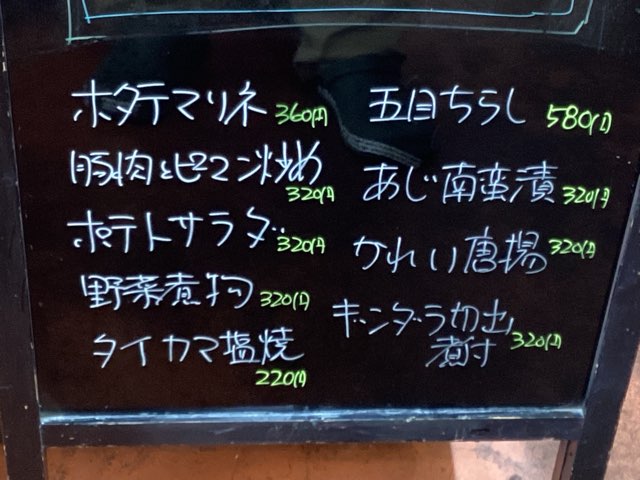 ホタテマリネ 360円
豚肉とピーマン炒め 320円
ポテトサラダ 320円
野菜煮物 320円
タイカマ塩焼 220円
五目ちらし 580円
あじ南蛮漬 320円
かれい唐揚 320円
ギンダラ切出
煮付 320円